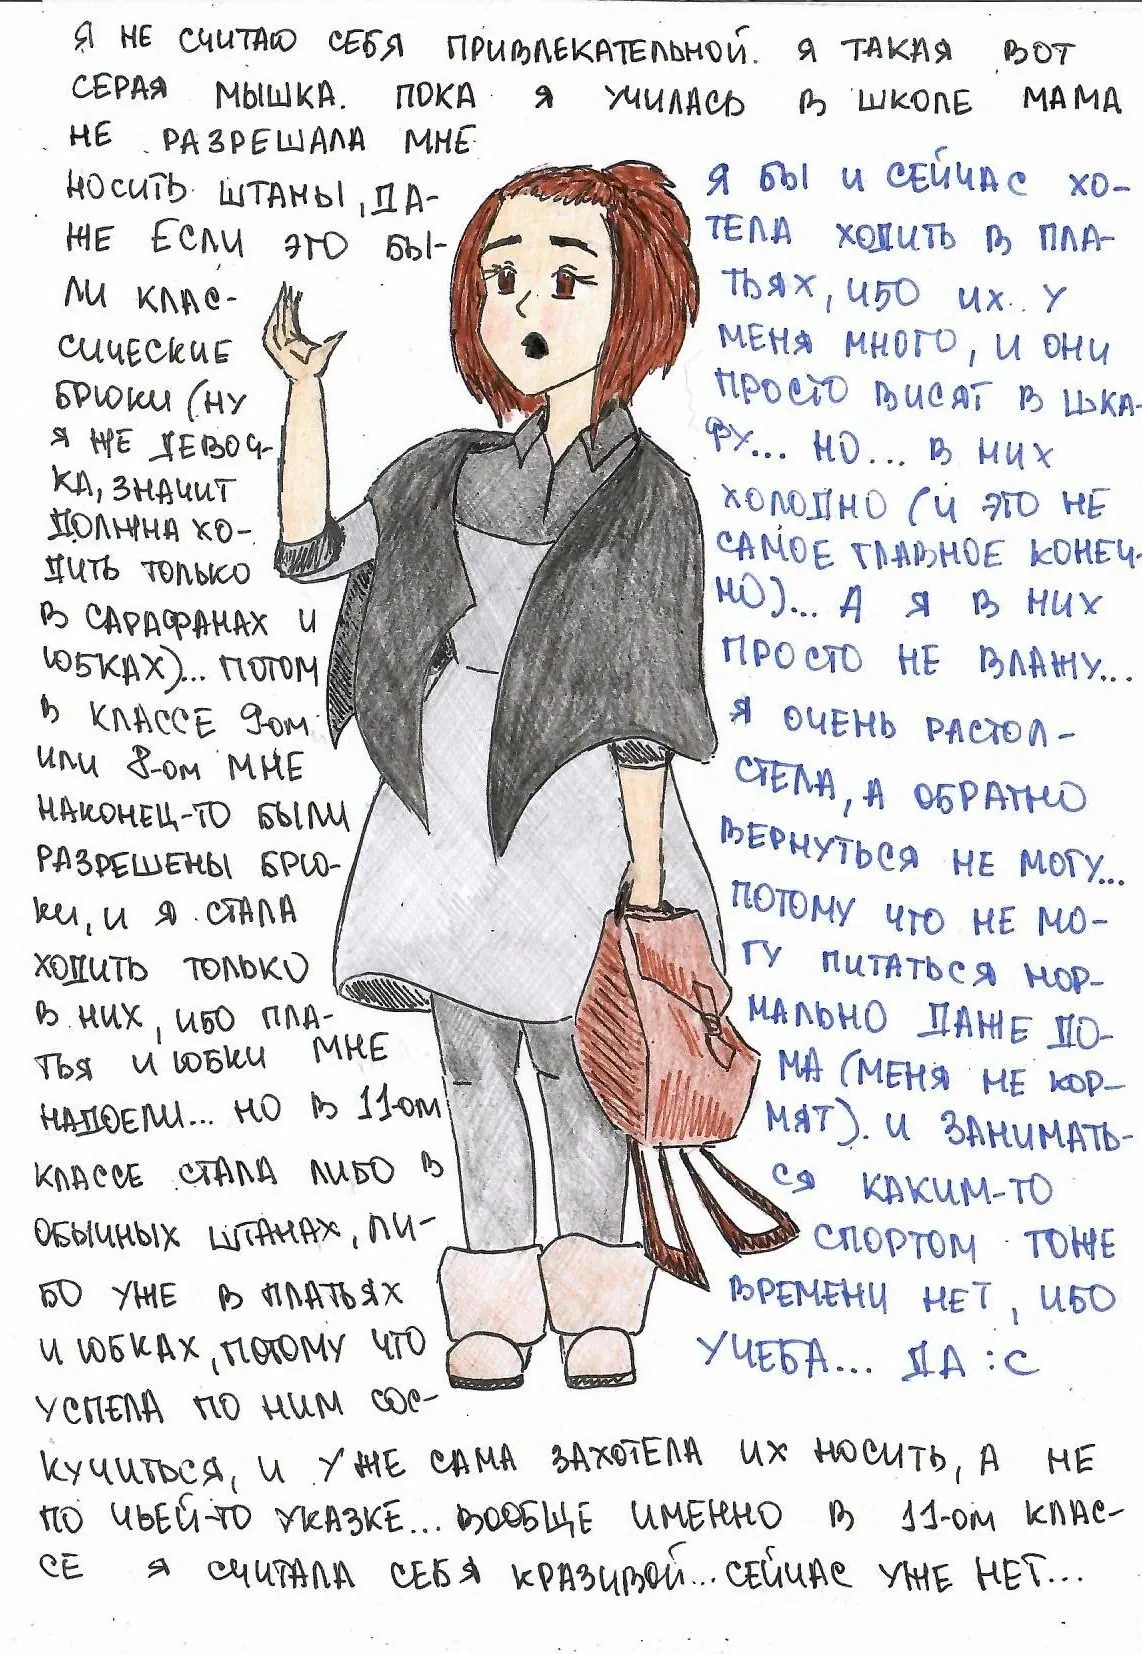 Я НЕ СЧИТАЮ СЕБЯ ПРИВЛЕКАТЕЛЬНОЙ. Я ТАКАЯ ВОТ
СЕРАЯ МЫШКА. ПОКА Я УЧИЛАСЬ В ШКОЛЕ МАМА
НЕ РАЗРЕШАЛА МНЕ
НОСИТЬ ШТАНЫ, ДА-
ЖЕ ЕСЛИ ЭТО БЫ-
ЛИ КЛАС-
СИЧЕСКИЕ
БРЮКИ (НУ
Я ЖЕ ДЕВОЧ-
КА, ЗНАЧИТ
ДОЛЖНА ХО-
ДИТЬ ТОЛЬКО
В САРАФАНАХ И
ЮБКАХ)... ПОТОМ
В КЛАССЕ 9-ОМ
ИЛИ 8-ОМ МНЕ
НАКОНЕЦ-ТО БЫЛИ
РАЗРЕШЕНЫ БРЮ-
КИ, И Я СТАЛА
ХОДИТЬ ТОЛЬКО
В НИХ, ИБО ПЛА-
ТЬЯ И ЮБКИ МНЕ
НАДОЕЛИ... НО В 11-ОМ
КЛАССЕ СТАЛА ЛИБО В
ОБЫЧНЫХ ШТАНАХ, ЛИ-
БО УЖЕ В ПЛАТЬЯХ
И ЮБКАХ, ПОТОМУ ЧТО
УСПЕЛА ПО НИМ СОС-
КУЧИТЬСЯ, И УЖЕ САМА ЗАХОТЕЛА ИХ НОСИТЬ, А НЕ
ПО ЧЬЕЙ-ТО УКАЗКЕ... ВООБЩЕ ИМЕННО В 11-ОМ КЛАС-
СЕ Я СЧИТАЛА СЕБЯ КРАЗИВОЙ... СЕЙЧАС УЖЕ НЕТ...
Я БЫ И СЕЙЧАС ХО-
ТЕЛА ХОДИТЬ В ПЛА-
ТЬЯХ, ИБО ИХ У
МЕНЯ МНОГО, И ОНИ
ПРОСТО ВИСЯТ В ШКА-
ФУ... НО... В НИХ
ХОЛОДНО (И ЭТО НЕ
САМОЕ ГЛАВНОЕ КОНЕЧ-
НО)... А Я В НИХ
ПРОСТО НЕ ВЛАЖУ...
Я ОЧЕНЬ РАСТОЛ-
СТЕЛА, А ОБРАТНО
ВЕРНУТЬСЯ НЕ МОГУ...
ПОТОМУ ЧТО НЕ МО-
ГУ ПИТАТЬСЯ НОР-
МАЛЬНО ДАЖЕ ДО-
МА (МЕНЯ НЕ КОР-
МЯТ). И ЗАНИМАТЬ-
СЯ КАКИМ-ТО
СПОРТОМ ТОЖЕ
ВРЕМЕНИ НЕТ, ИБО
УЧЕБА... ДА :С